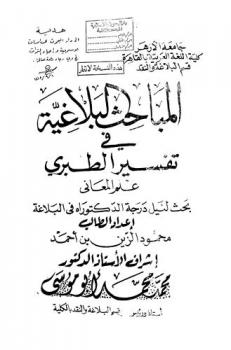 جامعة الأزهر
كلية اللغة العربية بالقاهرة
قسم البلاغة والنقد
هدية
المباحث البلاغية
في
تفسير الطبري
علم المعاني
بحث لنيل درجة الدكتوراه في البلاغة
إعداد الطالب
محمود الزين بن أحمد
إشراف الأستاذ الدكتور
محمد محمد أبو موسى
أستاذ ورئيس قسم البلاغة والنقد بالكلية